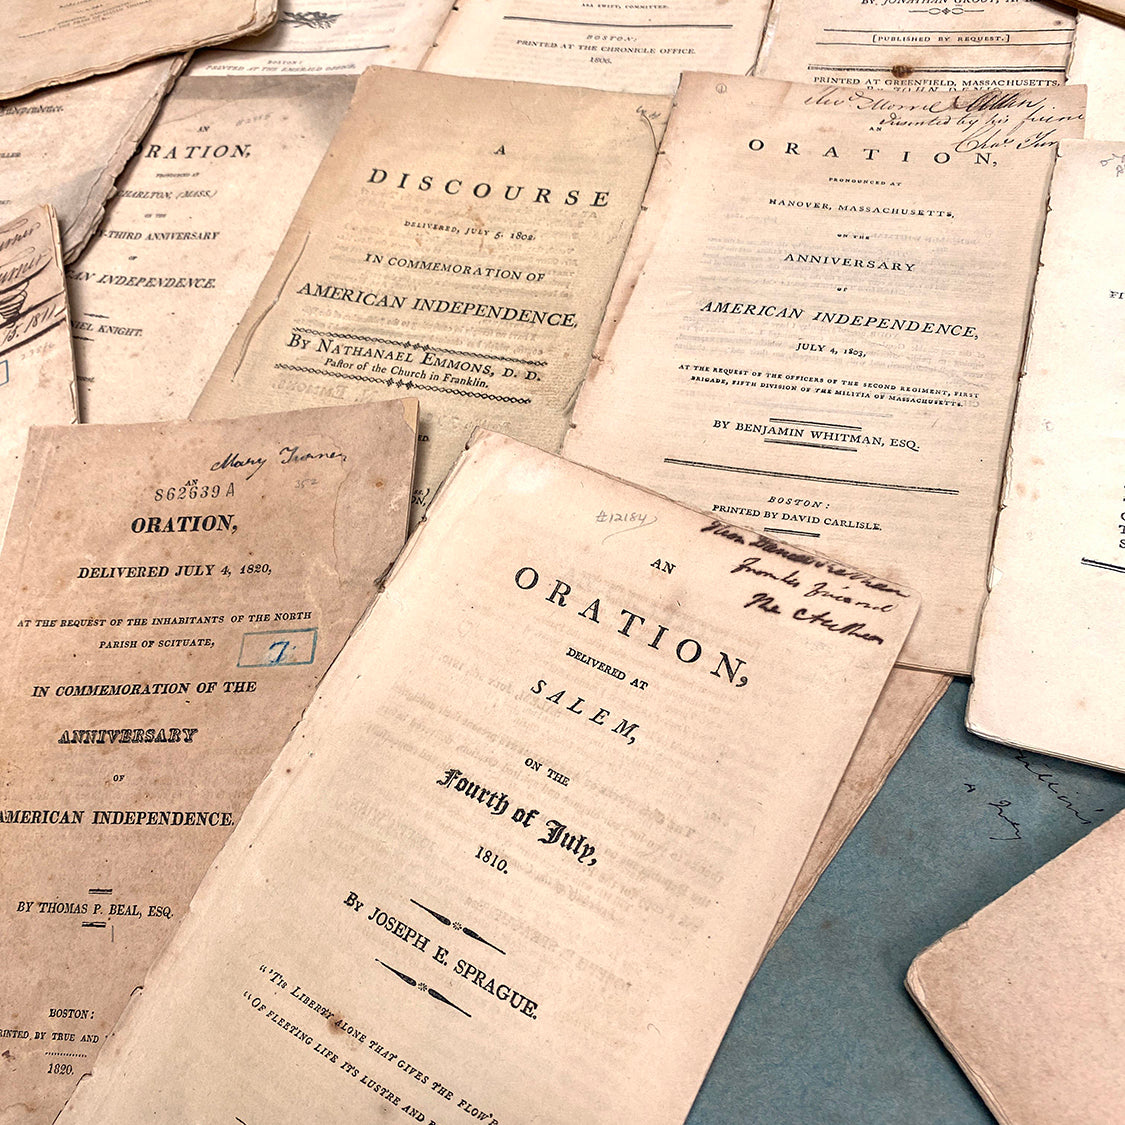 ASA SWIFT, COMMITTEE.
BOSTON:
PRINTED AT THE CHRONICLE OFFICE.
1806.
BY JONATHAN GROUT, A.
[PUBLISHED BY REQUEST.]
PRINTED AT GREENFIELD, MASSACHUSETTS,
BY JOHN DENIO
BOSTON:
PRINTED AT THE EMERALD OFFICE,
AN
ORATION,
PRONOUNCED AT
CHARLTON, (MASS.)
ON THE
-THIRD ANNIVERSARY
OF
AN INDEPENDENCE.
IEL KNIGHT.
15. 1811
A
DISCOURSE
DELIVERED, JULY 5, 1802.
IN COMMEMORATION OF
AMERICAN INDEPENDENCE,
By NATHANAEL EMMONS, D. D.
Pastor of the Church in Franklin.
presented by his friend
AN
ORATION,
PRONOUNCED AT
HANOVER, MASSACHUSETTS,
ON THE
ANNIVERSARY
OF
AMERICAN INDEPENDENCE,
JULY 4, 1803,
AT THE REQUEST OF THE OFFICERS OF THE SECOND REGIMENT, FIRST
BRIGADE, FIFTH DIVISION OF THE MILITIA OF MASSACHUSETTS.
BY BENJAMIN WHITMAN, ESQ.
BOSTON:
PRINTED BY DAVID CARLISLE.
Mary Turner
352
AN
862639 A
ORATION,
DELIVERED JULY 4, 1820,
AT THE REQUEST OF THE INHABITANTS OF THE NORTH
PARISH OF SCITUATE,
7.
IN COMMEMORATION OF THE
ANNIVERSARY
OF
AMERICAN INDEPENDENCE.
BY THOMAS P. BEAL, ESQ.
BOSTON:
PRINTED BY TRUE AND
1820.
#12184
from his friend
The Author
AN
ORATION,
DELIVERED AT
SALEM,
ON THE
Fourth of July,
1810.
By JOSEPH E. SPRAGUE.
"'TIS LIBERTY ALONE THAT GIVES THE FLOW'R
"OF FLEETING LIFE ITS LUSTRE AND